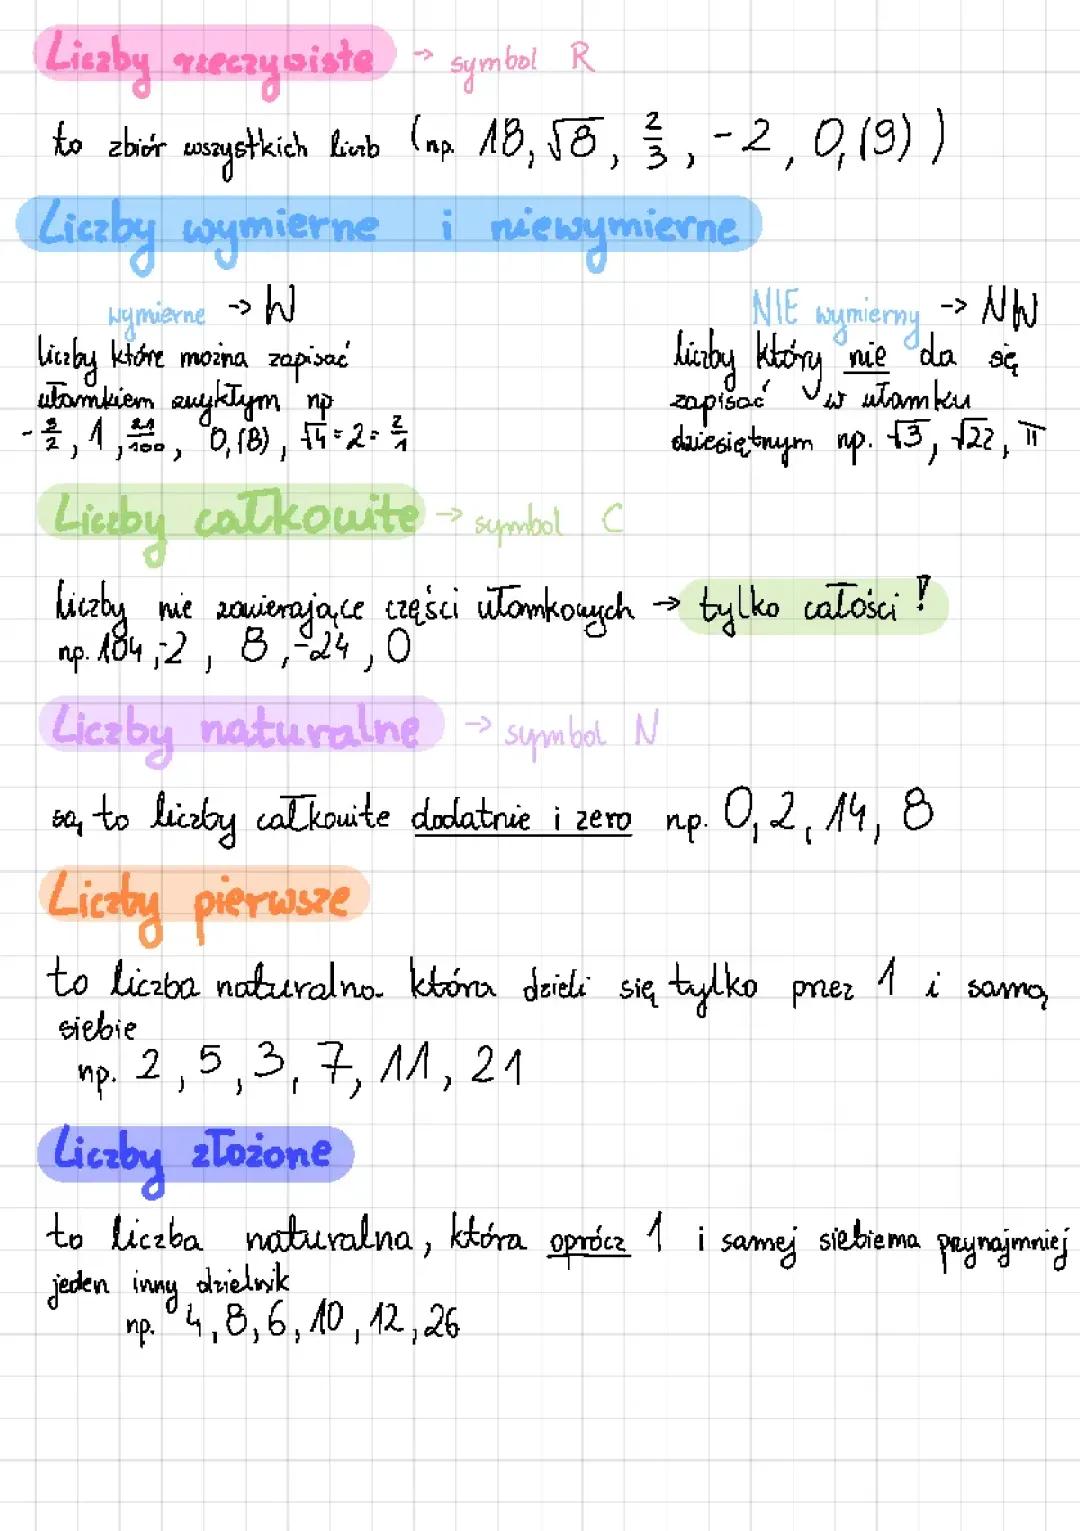 Liczby rzeczywiste → symbol R
to zbiór wszystkich liczb (np. 18, √8, 2/3, -2, 0,(9))
Liczby wymierne i niewymierne
wymierne → W
liczby które można zapisać
ułamkiem zwykłym np
-3/2, 1, 21/100, 0,(8), √4 = 2 = 2/1
NIE wymierny → NW
liczby który nie da się
zapisać w ułamku
dziesiętnym np. √3, √22, π
Liczby całkowite → symbol C
liczby nie zawierające części ułamkowych → tylko całości!
np. 104, -2, 8, -24, 0
Liczby naturalne → symbol N
są to liczby całkowite dodatnie i zero np. 0, 2, 14, 8
Liczby pierwsze
to liczba naturalna która dzieli się tylko przez 1 i samą
siebie
np. 2, 5, 3, 7, 11, 21
Liczby złożone
to liczba naturalna, która oprócz 1 i samej siebie ma przynajmniej
jeden inny dzielnik
np. 4, 8, 6, 10, 12, 26